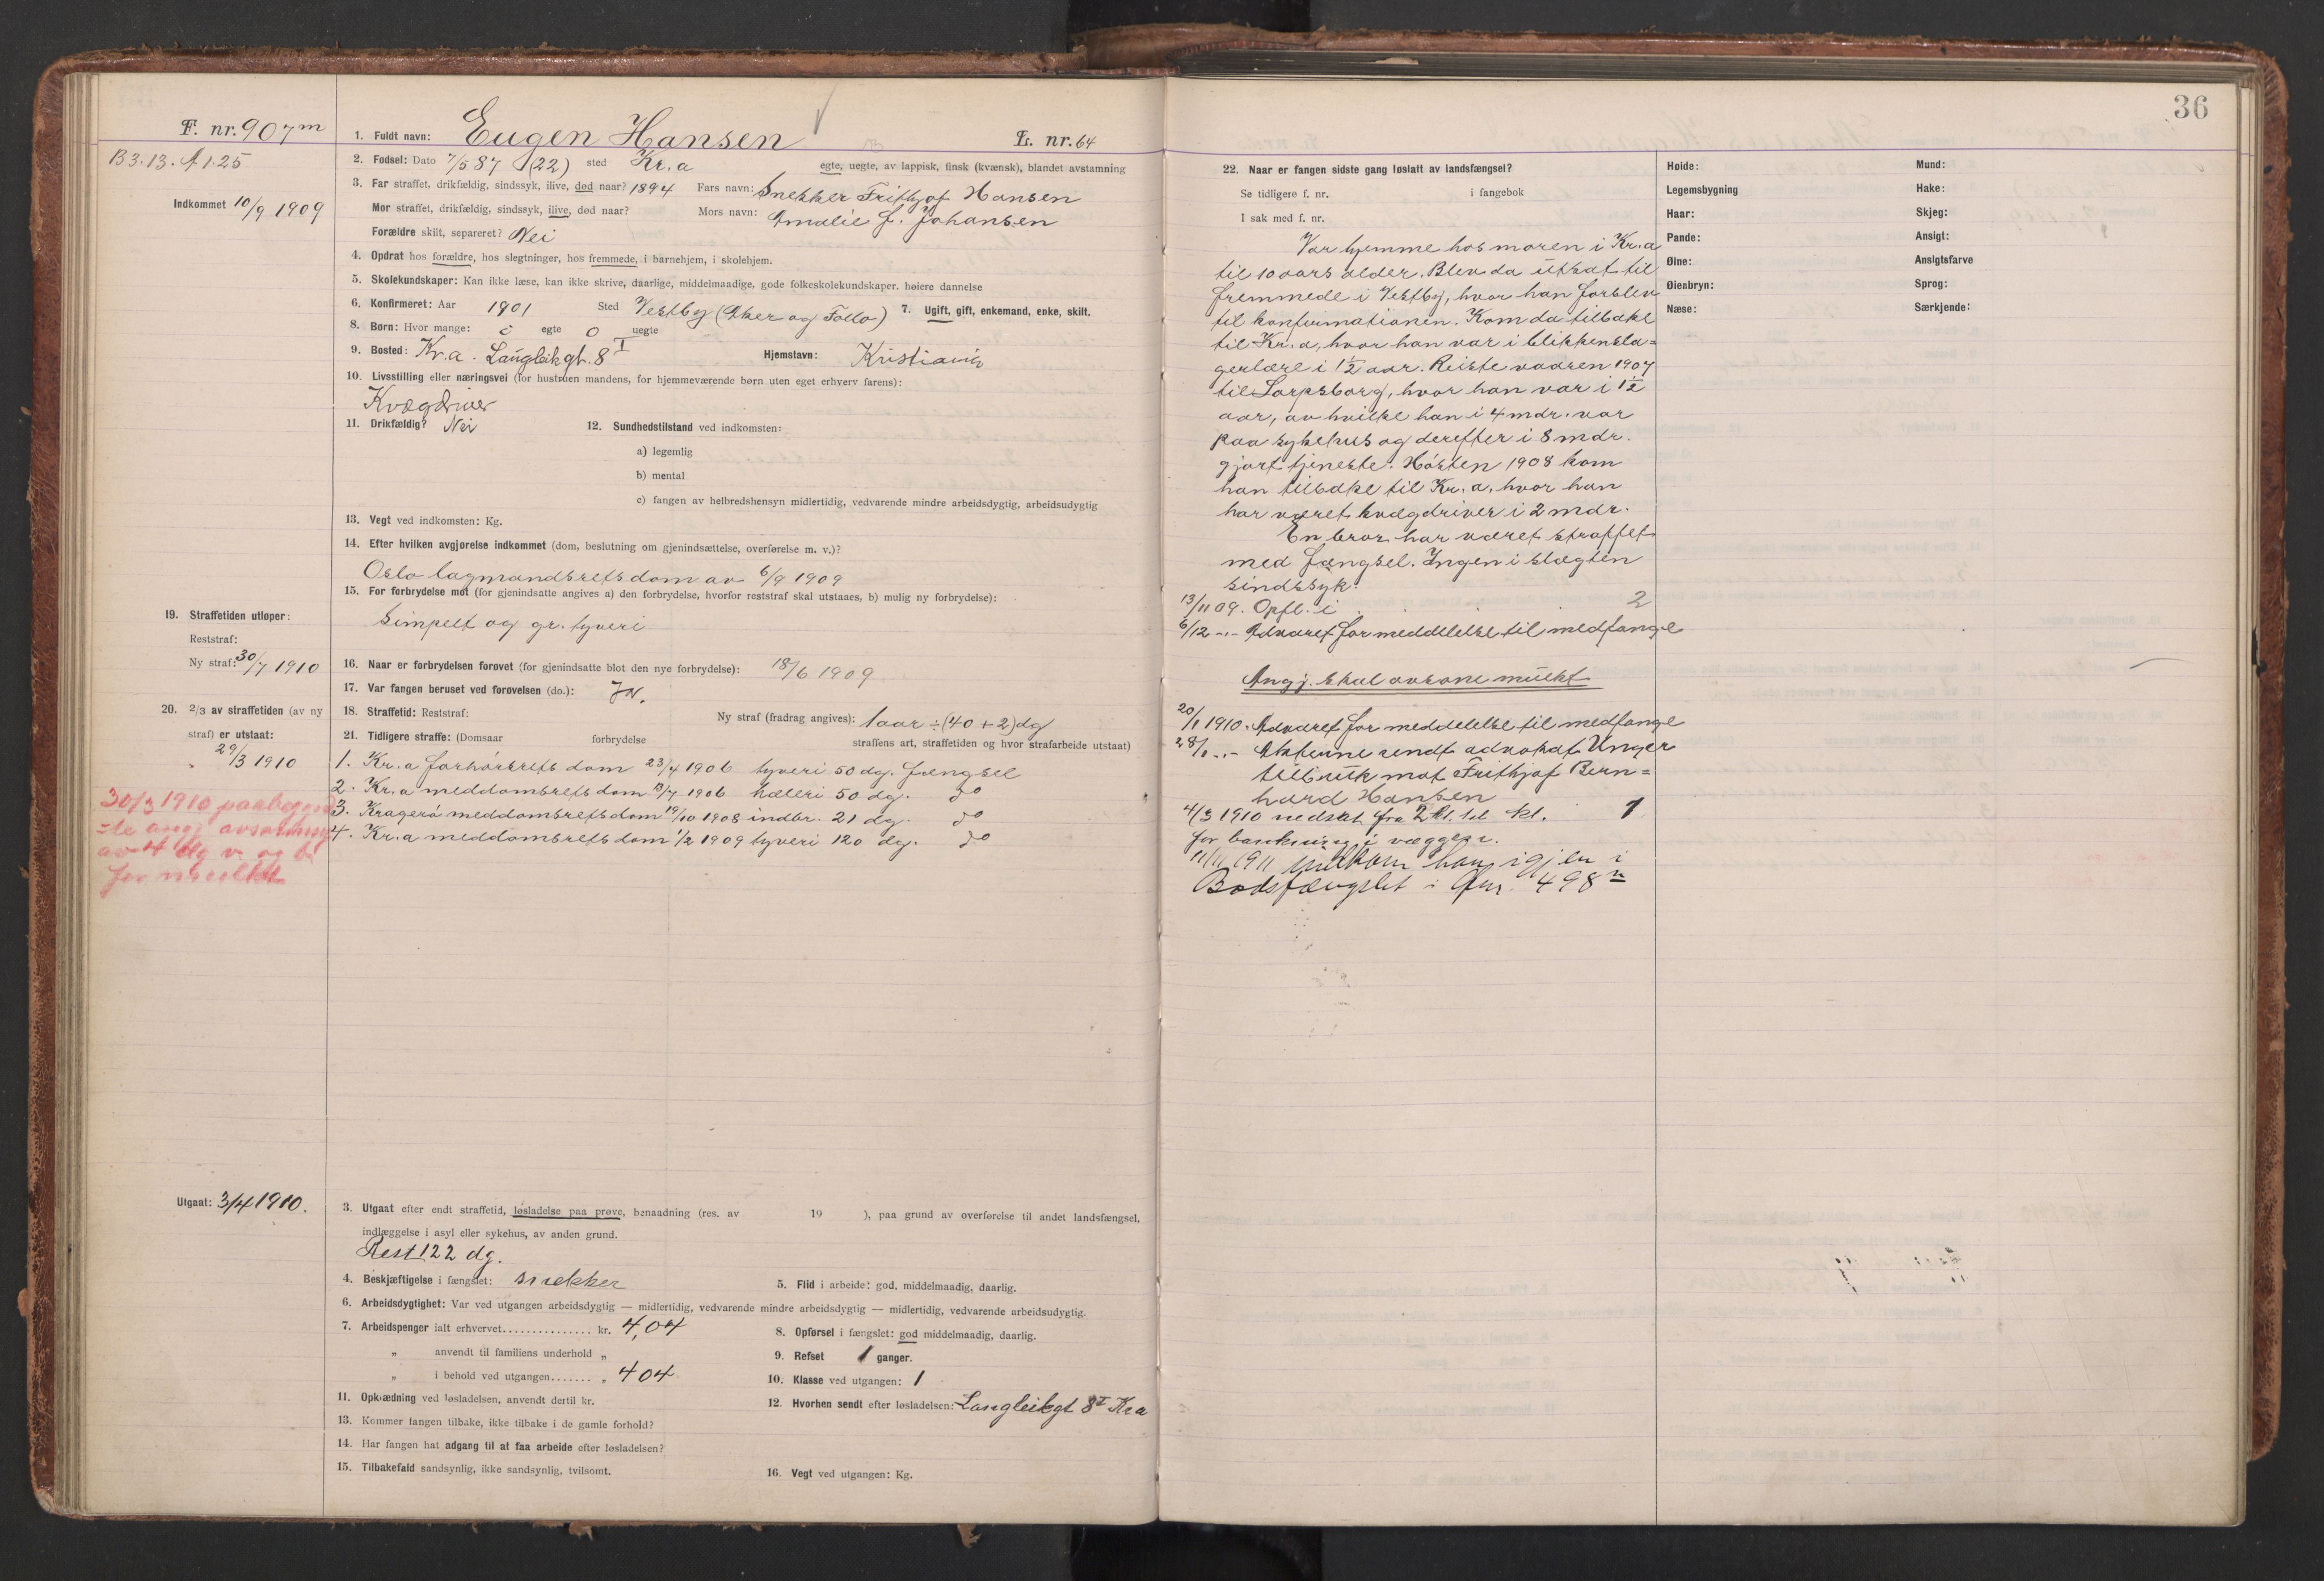 36
F. nr. 907 m
B 3. 13. A 1. 25
Indkommet 10/9 1909
1. Fuldt navn: Eugen Hansen L. nr. 64
2. Fødsel: Dato 7/5 87 (22) sted Kr.a egte, uegte, av lappisk, finsk (kvænsk), blandet avstamning
3. Far straffet, drikfældig, sindssyk, ilive, død naar? 1894 Fars navn: Snekker Frithjof Hansen
Mor straffet, drikfældig, sindssyk, ilive, død naar? Mors navn: Amalie f. Johansen
Forældre skilt, separeret? Nei
4. Opdrat hos forældre, hos slegtninger, hos fremmede, i barnehjem, i skolehjem.
5. Skolekundskaper: Kan ikke læse, kan ikke skrive, daarlige, middelmaadige, gode folkeskolekundskaper, høiere dannelse
6. Konfirmeret: Aar 1901 Sted Vestby (Aker og Follo) 7. Ugift, gift, enkemand, enke, skilt.
8. Børn: Hvor mange: 0 egte 0 uegte
9. Bosted: Kr.a. Langleikgt. 8 I Hjemstavn: Kristiania
10. Livsstilling eller næringsvei (for hustruen mandens, for hjemmeværende børn uten eget erhverv farens):
Kvægdriver
11. Drikfældig? Nei 12. Sundhedstilstand ved indkomsten:
a) legemlig
b) mental
c) fangen av helbredshensyn midlertidig, vedvarende mindre arbeidsdygtig, arbeidsudygtig
13. Vegt ved indkomsten: Kg.
14. Efter hvilken avgjørelse indkommet (dom, beslutning om gjenindsættelse, overførelse m. v.)?
Oslo lagmandsrets dom av 6/9 1909
15. For forbrydelse mot (for gjenindsatte angives a) den forbrydelse, hvorfor reststraf skal utstaaes, b) mulig ny forbrydelse):
Simpelt og gr. tyveri
19. Straffetiden utløper:
Reststraf:
Ny straf: 30/7 1910
16. Naar er forbrydelsen forøvet (for gjenindsatte blot den nye forbrydelse): 18/6 1909
17. Var fangen beruset ved forøvelsen (do.): Ja.
20. 2/3 av straffetiden (av ny
straf) er utstaat:
" 29/3 1910
18. Straffetid: Reststraf: Ny straf (fradrag angives): 1 aar ÷ (40 + 2) dg
21. Tidligere straffe: (Domsaar forbrydelse straffens art, straffetiden og hvor strafarbeide utstaat)
1. Kr.a forhørsrets dom 23/4 1906 tyveri 50 dg. fængsel
2. Kr.a meddomsrets dom 13/7 1906 hæleri 50 dg. do
3. Kragerø meddomsrets dom 19/10 1908 indbr. 21 dg. do
4. Kr.a meddomsrets dom 1/2 1909 tyveri 120 dg. do
30/3 1910 paabegynd
=te angj avsoning
av 4 dg v. og b.
for mulkt
Utgaat: 3/4 1910.
3. Utgaat efter endt straffetid, løsladelse paa prøve, benaadning (res. av 19 ), paa grund av overførelse til andet landsfængsel,
indlæggelse i asyl eller sykehus, av anden grund.
Rest 122 dg.
4. Beskjæftigelse i fængslet: snekker 5. Flid i arbeide: god, middelmaadig, daarlig.
6. Arbeidsdygtighet: Var ved utgangen arbeidsdygtig — midlertidig, vedvarende mindre arbeidsdygtig — midlertidig, vedvarende arbeidsudygtig.
7. Arbeidspenger ialt erhvervet............... kr. 4,04 8. Opførsel i fængslet: god middelmaadig, daarlig.
„ anvendt til familiens underhold „ 9. Refset 1 ganger.
„ i behold ved utgangen....... „ 4 04 10. Klasse ved utgangen: 1
11. Opklædning ved løsladelsen, anvendt dertil kr. 12. Hvorhen sendt efter løsladelsen: Langleikgt 8 I Kra
13. Kommer fangen tilbake, ikke tilbake i de gamle forhold?
14. Har fangen hat adgang til at faa arbeide efter løsladelsen?
15. Tilbakefald sandsynlig, ikke sandsynlig, tvilsomt. 16. Vegt ved utgangen: Kg.
22. Naar er fangen sidste gang løslatt av landsfængsel?
Se tidligere f. nr. i fangebok
I sak med f. nr.
Var hjemme hos moren i Kr.a
til 10 aars alder. Blev da utsat til
fremmede i Vestby, hvor han forblev
til konfirmationen. Kom da tilbake
til Kr.a, hvor han var i blikkensla=
gerlære i 1½ aar. Reiste vaaren 1907
til Sarpsborg, hvor han var i 1½
aar, av hvilke han i 4 mdr. var
paa sykehus og derefter i 8 mdr.
gjort tjeneste. Høsten 1908 kom
han tilbake til Kr.a, hvor han
har været kvægdriver i 2 mdr.
En bror har været straffet
med fængsel. Ingen i slægten
sindssyk.
13/11 09. Opfl. i 2
6/12 -.- Advaret for meddelelse til medfange
Angj. skal avsone mulkt
20/1 1910. Advaret for meddelelse til medfange
28/1 -.- Akterne sendt advokat Unger
til bruk mot Frithjof Bern=
hard Hansen
4/3 1910 nedsat fra 2 kl. til kl. 1
for bankning i væggen.
11/11 1911 indkom han igjen i
Bodsfængslet i fnr. 498 n
Høide:
Legemsbygning
Haar:
Pande:
Øine:
Øienbryn:
Næse:
Mund:
Hake:
Skjeg:
Ansigt:
Ansigtsfarve
Sprog:
Særkjende: